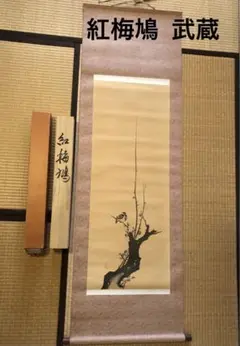 紅梅鳩 武蔵
紅梅鳩